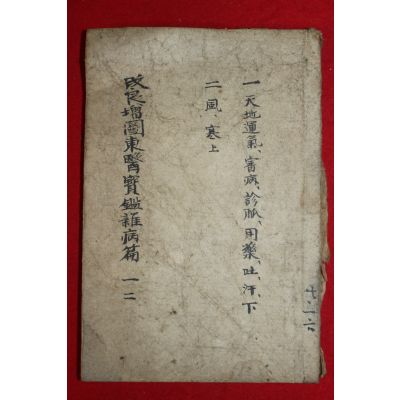 一 天地運氣、審病、診脈、用藥、吐、汗、下
二、風、寒上
改良增圖東醫寶鑑雜病篇 一 二